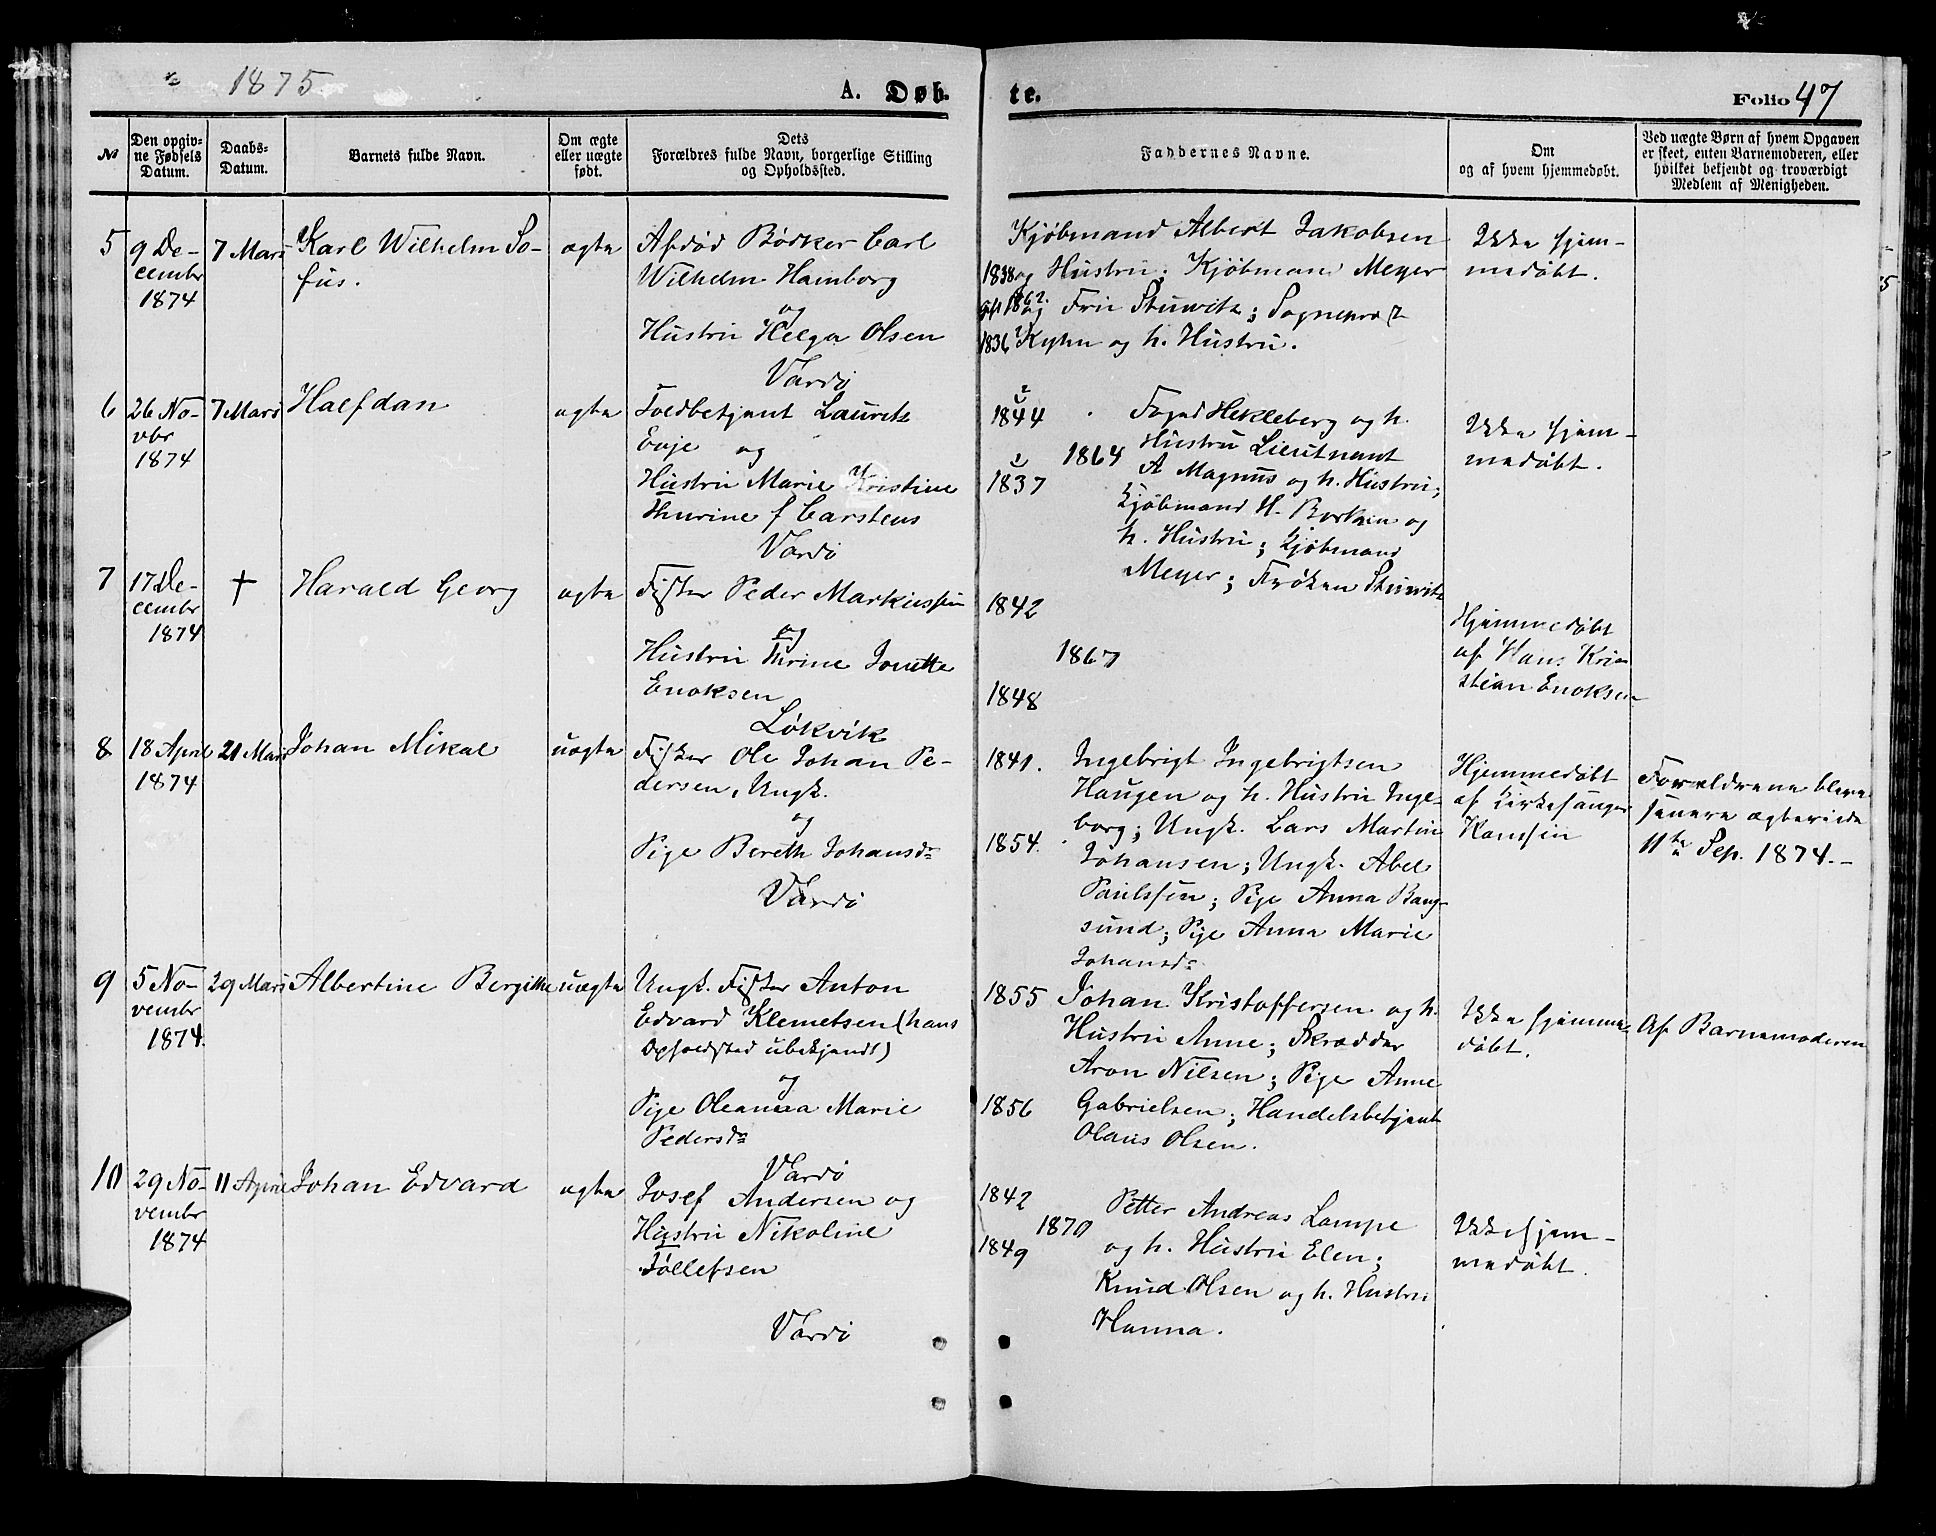 1875
A. Døb-
te.
Folio 47
№
Den opgiv-
ne Fødsels
Datum.
Daabs-
Datum.
Barnets fulde Navn.
Om ægte
eller uægte
født.
Dets
Forældres fulde Navn, borgerlige Stilling
og Opholdssted.
Faddernes Navne.
Om
og af hvem hjemmedøbt.
Ved uægte Børn af hvem Opgaven
er skeet, enten Barnemoderen, eller
hvilket bekjendt og troværdigt
Medlem af Menigheden.
5
9 De-
cembr
1874
7 Mars
Karl Wilhelm So-
fus.
ægte
Afdød Bødker Carl
Wilhelm Hamborg
og
Hustru Helga Olsen
Vardö
Kjøbmand Albert Jakobsen
1838 og Hustru; Kjøbmand Meyer
gft 1862. og Frü Stuwitz; Sognepræst
1836 Kyhn og h. Hustru.
Ikke hjem-
medøbt.
6
26 No-
vbr
1874
7 Mars
Halfdan
ægte
Toldbetjent Lauritz
Evje og
Hustru Marie Kristine
Thurine f Carstens
Vardö
1844
1864
1837
Foged Hekleberg og h.
Hustru Lieutnant
A Magnus og h. Hustru;
Kjøbmand H. Borken og
h. Hustru; Kjøbmand
Meyer; Frøken Stuwitz
Ikke hjem-
medøbt.
7
17 De-
cembr
1874
†
Harald Georg
ægte
Fisker Peder Markussen
og
Hustru Thrine Jonette
Enoksen
Løkvik
1842
1867
1848
Hjemmedøbt
af Hans Kri-
stian Enoksen
8
18 April
1874
21 Mars
Johan Mikal
uægte
Fisker Ole Johan Pe-
dersen, Ungk.
og
Pige Bereth Johansdr
Vardö
1841.
1854.
Ingebrigt Ingebrigtsen
Haugen og h. Hustru Inge-
borg; Ungk. Lars Martin
Johansen; Ungk. Abel
Paulssen; Pige Anna Bang-
sund; Pige Anna Marie
Johansdr
Hjemmedøbt
af Kirkesanger
Hanssen
Forældrene bleve
senere ægteviede
11te Sep. 1874.-
9
5 No-
vembr
1874.
29 Mars
Albertine Bergitte
uægte
Ungk. Fisker Anton
Edvard Klemetsen (hans
Opholdsted ubekjendt)
og
Pige Oleanna Marie
Pedersdr
Vardö
1855
1856
Johan Kristoffersen og h.
Hustru Anne; Skrædder
Aron Nilsen; Pige Anne
Gabrielsen; Handelsbetjent
Olaus Olsen.
Ikke hjemme-
døbt.
Af Barnemoderen
10
29 No-
vembr
1874
11 April
Johan Edvard
ægte
Josef Andersen og
Hustru Nikoline
Tollefsen
Vardö
1842
1870
1849
Petter Andreas Lampe
og h. Hustru Elen;
Knud Olsen og h. Hustru
Hanna.
Ikke hjem-
medøbt.